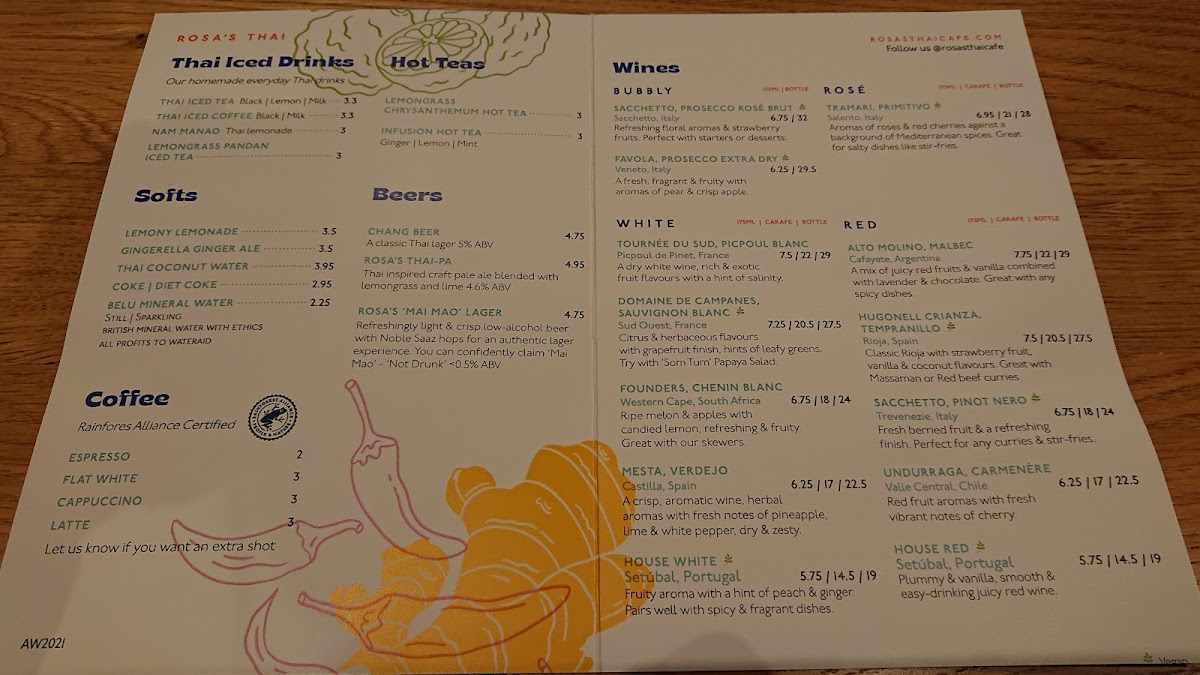 ROSA'S THAI
Thai Iced Drinks
Our homemade everyday Thai drinks
THAI ICED TEA Black | Lemon | Milk 3.3
THAI ICED COFFEE Black | Milk 3.3
NAM MANAO Thai lemonade 3
LEMONGRASS PANDAN
ICED TEA 3
Hot Teas
LEMONGRASS
CHRYSANTHEMUM HOT TEA 3
INFUSION HOT TEA 3
Ginger | Lemon | Mint
Softs
LEMONY LEMONADE 3.5
GINGERELLA GINGER ALE 3.5
THAI COCONUT WATER 3.95
COKE | DIET COKE 2.95
BELU MINERAL WATER 2.25
STILL | SPARKLING
BRITISH MINERAL WATER WITH ETHICS
ALL PROFITS TO WATERAID
Beers
CHANG BEER 4.75
A classic Thai lager 5% ABV
ROSA'S THAI-PA 4.95
Thai inspired craft pale ale blended with
lemongrass and lime 4.6% ABV
ROSA'S 'MAI MAO' LAGER 4.75
Refreshingly light & crisp low-alcohol beer
with Noble Saaz hops for an authentic lager
experience. You can confidently claim 'Mai
Mao' - 'Not Drunk' <0.5% ABV
Coffee
Rainfores Alliance Certified
ESPRESSO 2
FLAT WHITE 3
CAPPUCCINO 3
LATTE 3
Let us know if you want an extra shot
AW2021
ROSASTHAICAFE.COM
Follow us @rosasthaicafe
Wines
BUBBLY 125ML | BOTTLE
SACCHETTO, PROSECCO ROSÉ BRUT
Sacchetto, Italy 6.75 | 32
Refreshing floral aromas & strawberry
fruits. Perfect with starters or desserts.
FAVOLA, PROSECCO EXTRA DRY
Veneto, Italy 6.25 | 29.5
A fresh, fragrant & fruity with
aromas of pear & crisp apple.
ROSÉ 175ML | CARAFE | BOTTLE
TRAMARI, PRIMITIVO
Salento, Italy 6.95 | 21 | 28
Aromas of roses & red cherries against a
background of Mediterranean spices. Great
for salty dishes like stir-fries.
WHITE 175ML | CARAFE | BOTTLE
TOURNÉE DU SUD, PICPOUL BLANC
Picpoul de Pinet, France 7.5 | 22 | 29
A dry white wine, rich & exotic
fruit flavours with a hint of salinity.
DOMAINE DE CAMPANES,
SAUVIGNON BLANC
Sud Ouest, France 7.25 | 20.5 | 27.5
Citrus & herbaceous flavours
with grapefruit finish, hints of leafy greens.
Try with 'Som Tum' Papaya Salad.
FOUNDERS, CHENIN BLANC
Western Cape, South Africa 6.75 | 18 | 24
Ripe melon & apples with
candied lemon, refreshing & fruity.
Great with our skewers.
MESTA, VERDEJO
Castilla, Spain 6.25 | 17 | 22.5
A crisp, aromatic wine, herbal
aromas with fresh notes of pineapple,
lime & white pepper, dry & zesty.
HOUSE WHITE
Setúbal, Portugal 5.75 | 14.5 | 19
Fruity aroma with a hint of peach & ginger.
Pairs well with spicy & fragrant dishes.
RED 175ML | CARAFE | BOTTLE
ALTO MOLINO, MALBEC
Cafayate, Argentina 7.75 | 22 | 29
A mix of juicy red fruits & vanilla combined
with lavender & chocolate. Great with any
spicy dishes.
HUGONELL CRIANZA,
TEMPRANILLO
Rioja, Spain 7.5 | 20.5 | 27.5
Classic Rioja with strawberry fruit,
vanilla & coconut flavours. Great with
Massaman or Red beef curries.
SACCHETTO, PINOT NERO
Trevenezie, Italy 6.75 | 18 | 24
Fresh berried fruit & a refreshing
finish. Perfect for any curries & stir-fries.
UNDURRAGA, CARMENÈRE
Valle Central, Chile 6.25 | 17 | 22.5
Red fruit aromas with fresh
vibrant notes of cherry.
HOUSE RED
Setúbal, Portugal 5.75 | 14.5 | 19
Plummy & vanilla, smooth &
easy-drinking juicy red wine.
Vegan